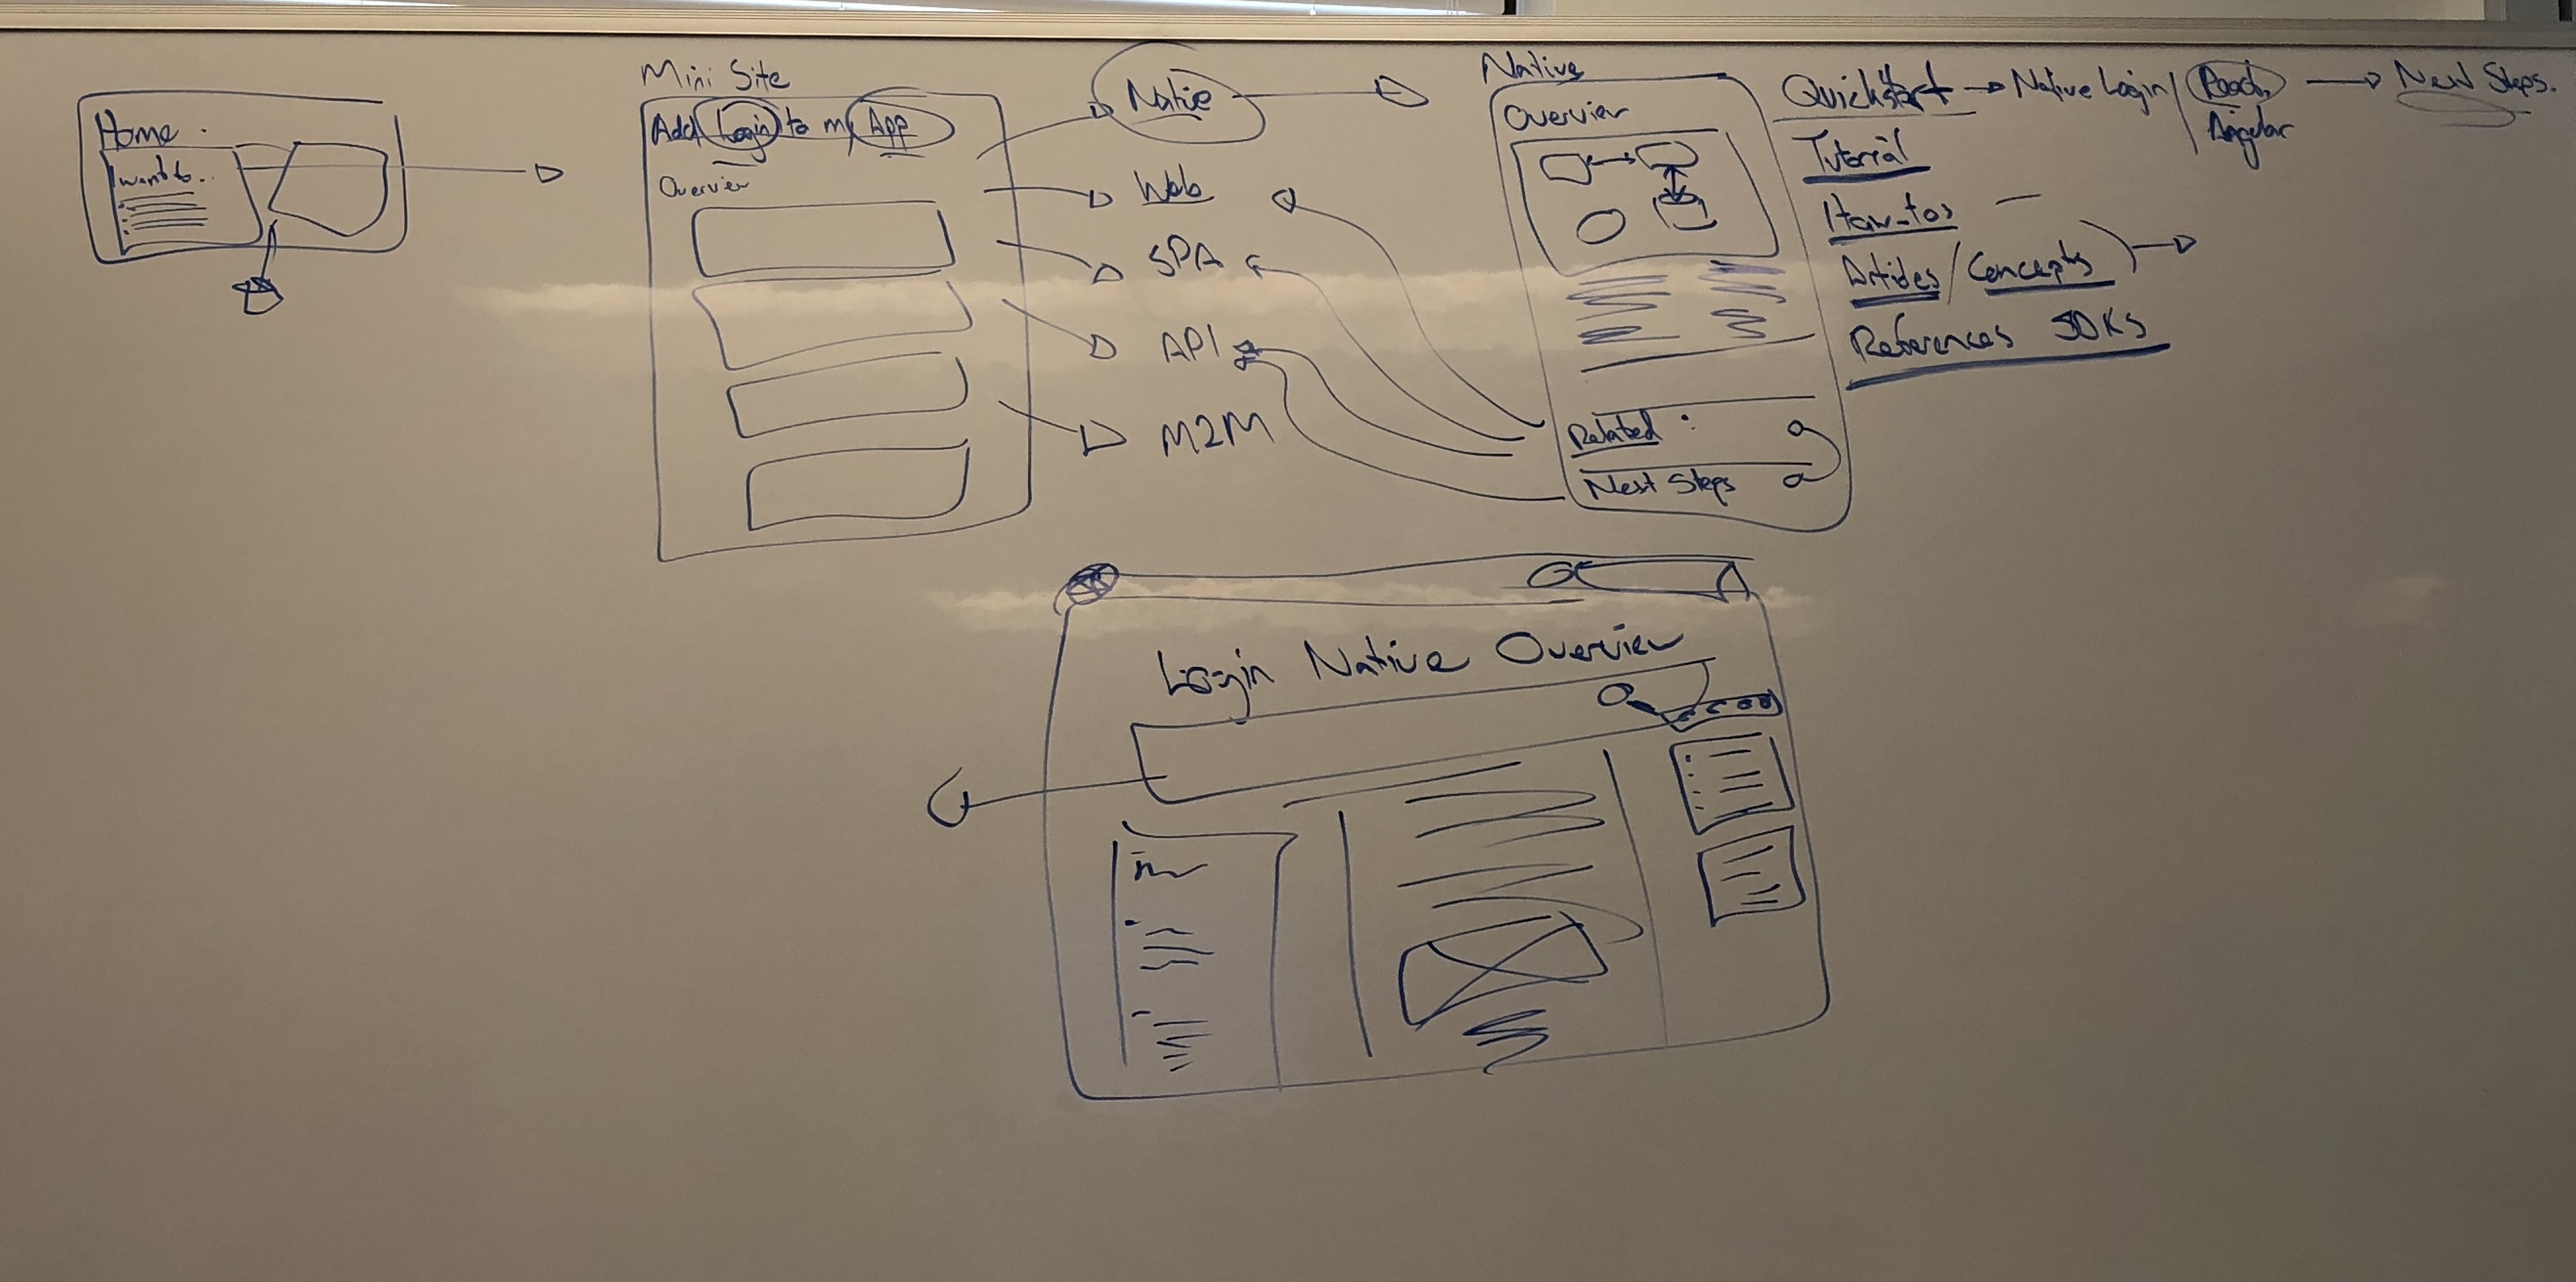 Home.
I want to...
Mini Site
Add Login to my App
Overview
Native
Web
SPA
API
M2M
Native
Overview
Related:
Next Steps
Quickstart → Native Login / React
Angular
→ Next Steps.
Tutorial
How-tos
Articles / Concepts
References SDKs
Login Native Overview